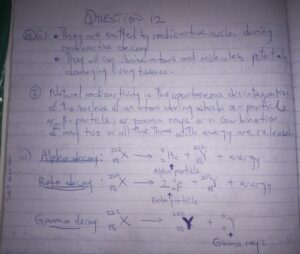 QUESTION 12
a) i) • They are emitted by radioactive nuclei during
radioactive decay
• They all can ionise atoms and molecules, potentially
damaging living tissues.
ii) Natural radioactivity is the spontaneous disintegration
of the nucleus of an atom during which α-particle
or β-particle, or gamma rays or a combination
of any two or all the three with energy are released
iii) Alpha decay: X → He + Y + energy
alpha particle
Beta decay: X → + Y + energy
beta particle
Gamma decay X → Y + γ
Gamma rays